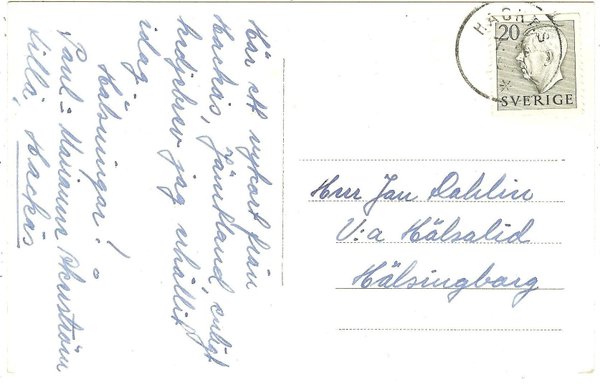 Här ett vykort från
Hackås, Jämtland enligt
kedjebrev jag erhållit
idag.
Hälsningar!
Paul o Marianne Åkerström
Killå, Hackås
HACKÅS
20
SVERIGE
Herr Jan Dahlin
V:a Hälsalid
Hälsingborg